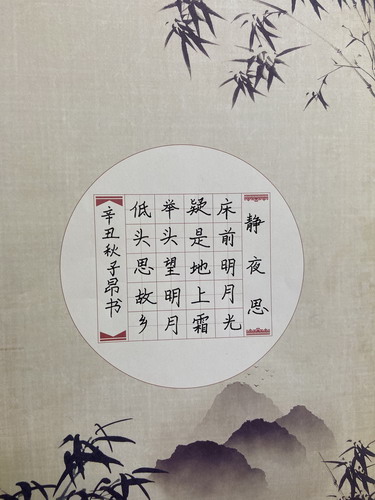 静夜思
床前明月光
疑是地上霜
举头望明月
低头思故乡
辛丑秋子昂书